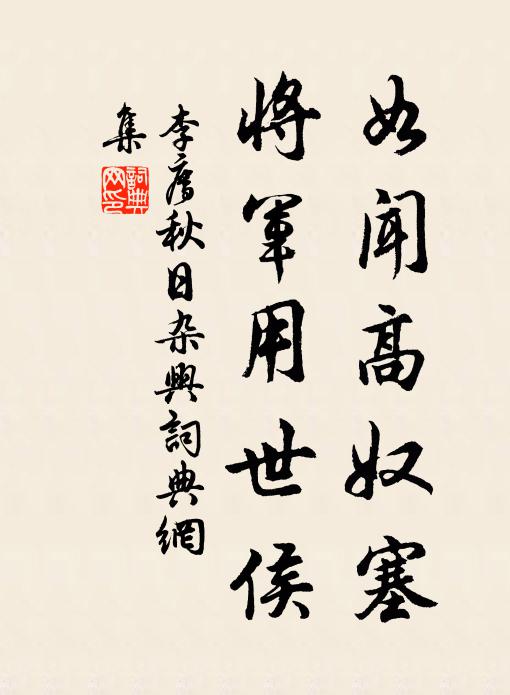 如聞高奴塞
將軍用世侯
李廌秋日杂興詞典網
集
詞典
网印